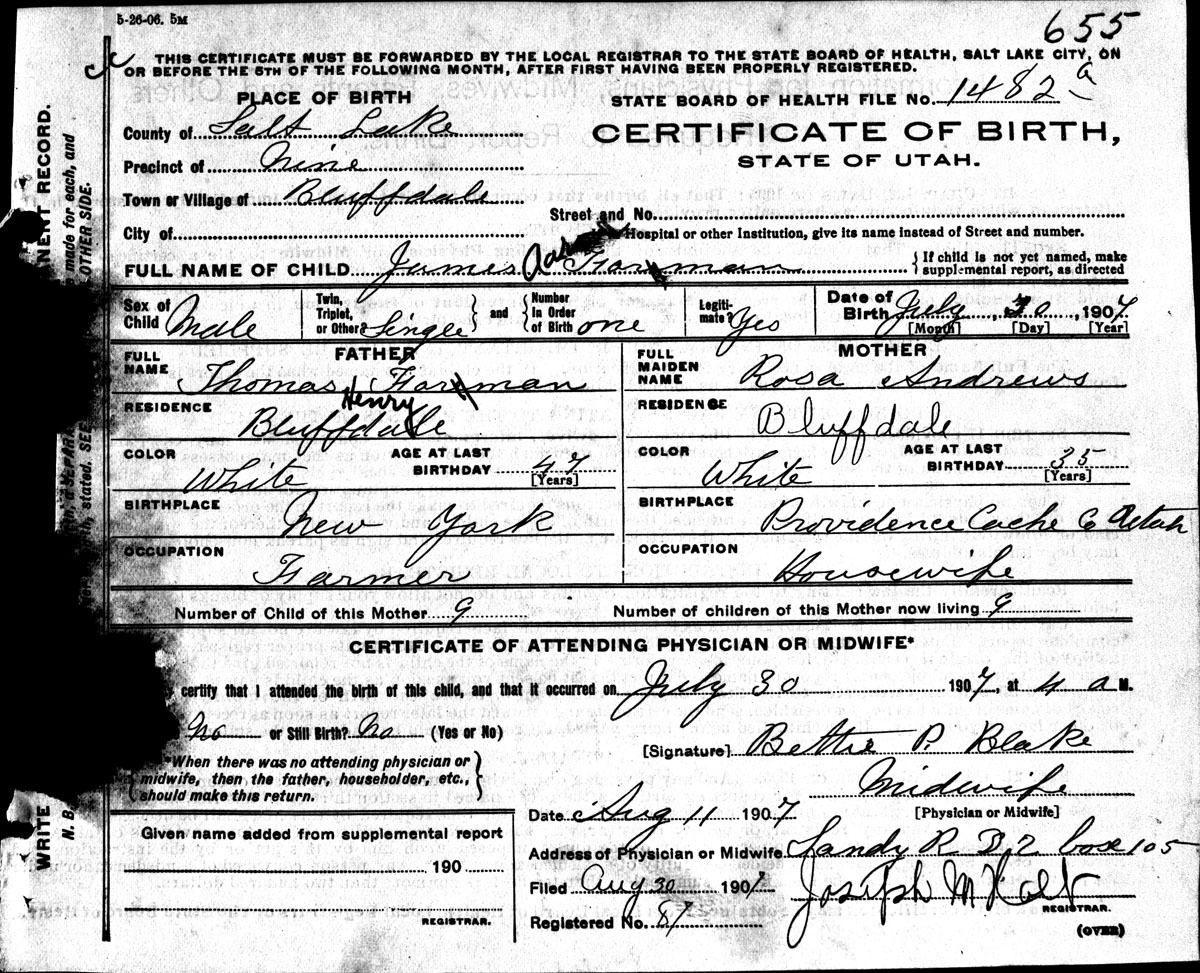 5-26-06. 5M
655
THIS CERTIFICATE MUST BE FORWARDED BY THE LOCAL REGISTRAR TO THE STATE BOARD OF HEALTH, SALT LAKE CITY, ON
OR BEFORE THE 5TH OF THE FOLLOWING MONTH, AFTER FIRST HAVING BEEN PROPERLY REGISTERED.
PLACE OF BIRTH
STATE BOARD OF HEALTH FILE No. 1482 a
County of Salt Lake
CERTIFICATE OF BIRTH,
Precinct of Nine
STATE OF UTAH.
Town or Village of Bluffdale
Street and No.
City of
Hospital or other Institution, give its name instead of Street and number.
FULL NAME OF CHILD James Aaron Forman
{ If child is not yet named, make
supplemental report, as directed
Sex of Child Male
Twin, Triplet, or Other? Single
and
Number in Order of Birth one
Legitimate? Yes
Date of Birth July 30, 1907
[Month] [Day] [Year]
FATHER
MOTHER
FULL NAME Thomas Henry Forman
FULL MAIDEN NAME Rosa Andrews
RESIDENCE Bluffdale
RESIDENCE Bluffdale
COLOR White AGE AT LAST BIRTHDAY 47 [Years]
COLOR White AGE AT LAST BIRTHDAY 35 [Years]
BIRTHPLACE New York
BIRTHPLACE Providence Cache Co Utah
OCCUPATION Farmer
OCCUPATION Housewife
Number of Child of this Mother 9
Number of children of this Mother now living 9
CERTIFICATE OF ATTENDING PHYSICIAN OR MIDWIFE*
y certify that I attended the birth of this child, and that it occurred on July 30 1907, at 4 a M.
No or Still Birth? No (Yes or No)
[Signature] Bettie P. Blake
*When there was no attending physician or
midwife, then the father, householder, etc.,
should make this return.
Midwife
[Physician or Midwife]
Date Aug 11 1907
Given name added from supplemental report
190
REGISTRAR.
Address of Physician or Midwife Sandy R D 2 box 105
Filed Aug 30 1907 Joseph M Holt
REGISTRAR.
Registered No. 87
(OVER)
NENT RECORD.
made for each, and
OTHER SIDE.
WRITE
N. B.